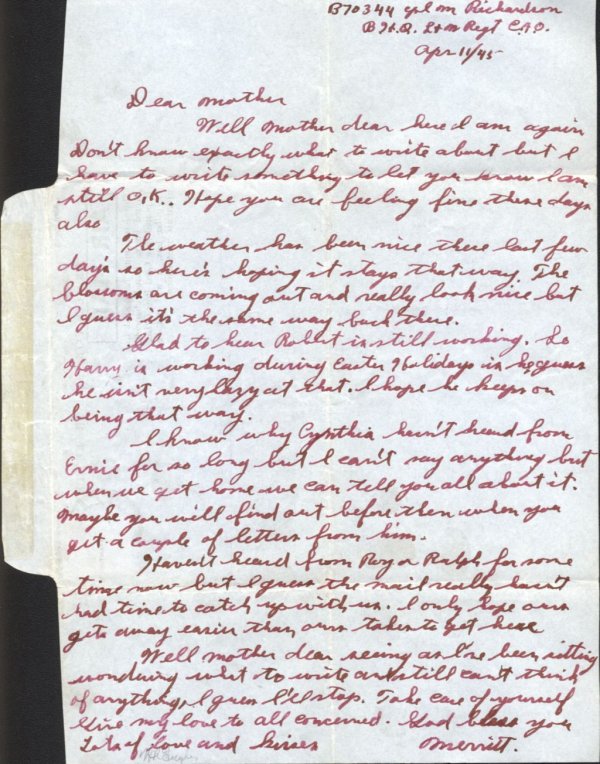 B70344 Cpl M Richardson
B H.Q. L & W Regt C.A.O.
Apr 11/45
Dear Mother
Well Mother dear here I am again
Don't know exactly what to write about but I
have to write something to let you know I am
still O.K.. Hope you are feeling fine these days
also
The weather has been nice these last few
day's so here's hoping it stays that way. The
blossoms are coming out and really look nice but
I guess it's the same way back there.
Glad to hear Robert is still working. So
Harry is working during Easter Holidays is he guess
he isn't very lazy at that. I hope he keeps on
being that way.
I know why Cynthia hasn't heard from
Ernie for so long but I can't say anything but
when we get home we can tell you all about it.
Maybe you will find out before then when you
get a couple of letters from him.
Haven't heard from Roy or Ralph for some
time now but I guess the mail really hasn't
had time to catch up with us. I only hope ours
gets away easier than ours takes to get here
Well mother dear seeing as I've been sitting
wondering what to write and still can't think
of anything I guess I'll stop. Take care of yourself
Give my love to all concerned. God bless you
Lots of love and kisses Merritt.